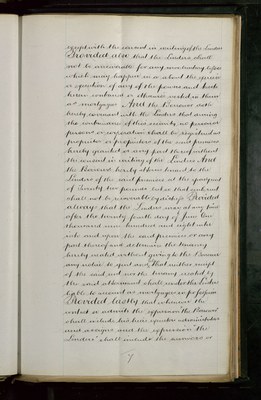 except with the consent in writing of the Lenders
Provided also that the Lenders shall
not be answerable for any involuntary losses
which may happen in or about the exercise
or execution of any of the powers and trusts
herein contained or otherwise vested in them
as mortgagees And the Borrower doth
hereby covenant with the Lenders that during
the continuance of this security no person or
persons or corporation shall be registered as
proprietor or proprietors of the said premises
hereby granted or any part thereof without
the consent in writing of the Lenders And
the Borrower hereby attorns tenant to the
Lenders of the said premises at the yearly rent
of Twenty two pounds but so that such rent
shall not be recoverable by distress Provided
always that the Lenders may at any time
after the twenty fourth day of June One
thousand nine hundred and eight enter
into and upon the said premises or any
part thereof and determine the tenancy
hereby created without giving to the Borrower
any notice to quit and that neither receipt
of the said rent nor the tenancy created by
the said attornment shall render the Lenders
liable to account as mortgagees in possession
Provided lastly that wherever the
context so admits the expression the Borrower
shall include his heirs executors administrators
and assigns and the expression "the
Lenders" shall include the survivors or
7